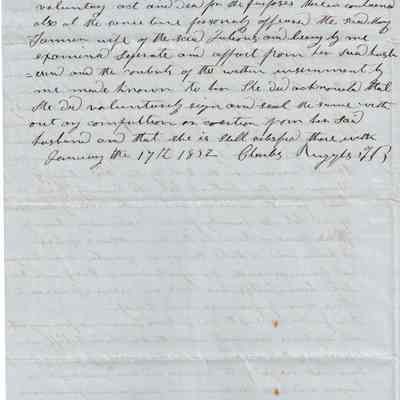 voluntary act and deed for the purposes therein contained
also at the same time personaly appeared the said Mary
Jamison wife of the said Julious and being by me
examined seperate and appart from her said husb
=and and the contents of the within insterment by
me made known to her She did acknowledge that
She did voluntarily sign and seal the same with
out any compultion or coertion from her said
husband and that she is still satisfied there with
January the 17th 1852 Charles Ruggles JP